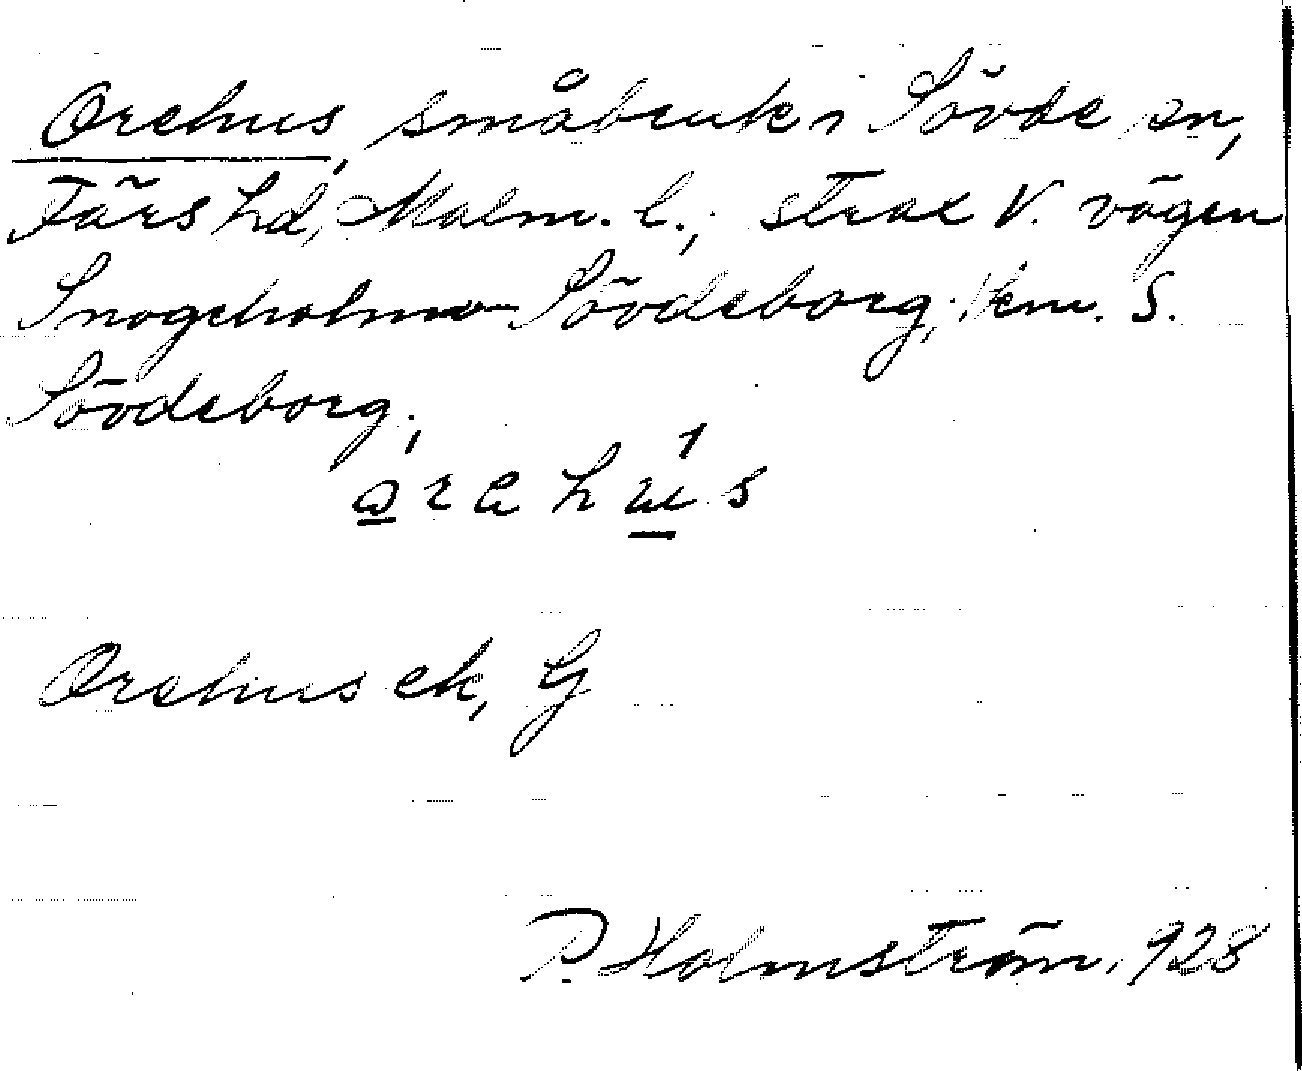 Orehus, småbruk i Sövde sn,
Färs hd, Malm. l., strax V. vägen
Snogeholm–Sövdeborg, 1 km. S.
Sövdeborg,
Orehus ek, G
P. Holmström. 928